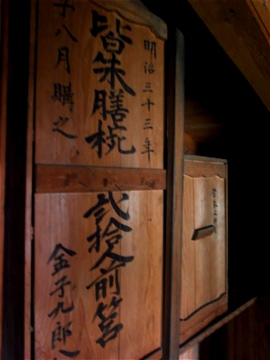 明治三十三年
皆朱膳椀
弐拾人前筥
子八月購之
金子九郎